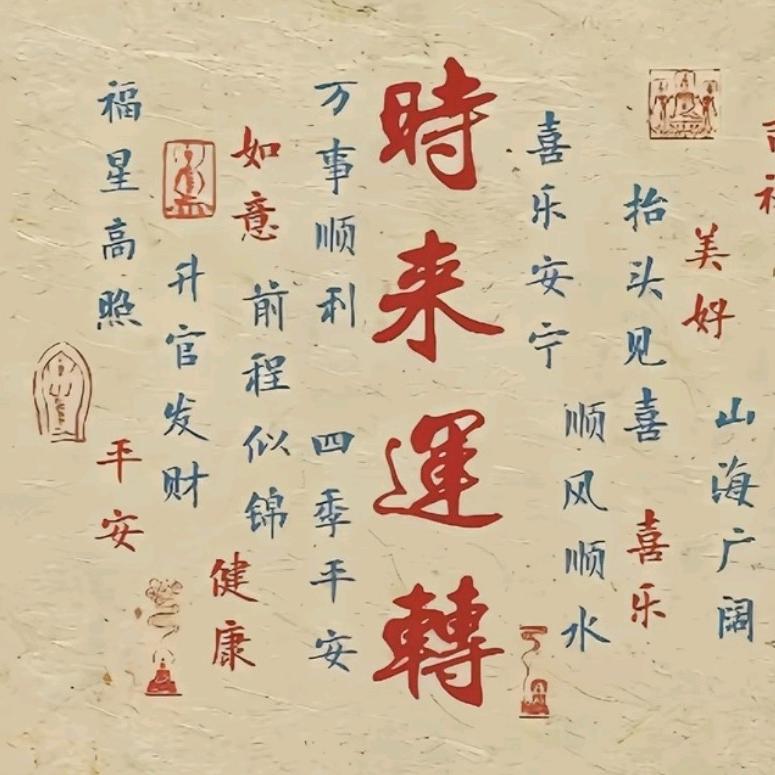 美好
山海广阔
抬头见喜
喜乐
喜乐安宁
顺风顺水
時来運轉
万事顺利
四季平安
如意
前程似锦
健康
升官发财
福星高照
平安